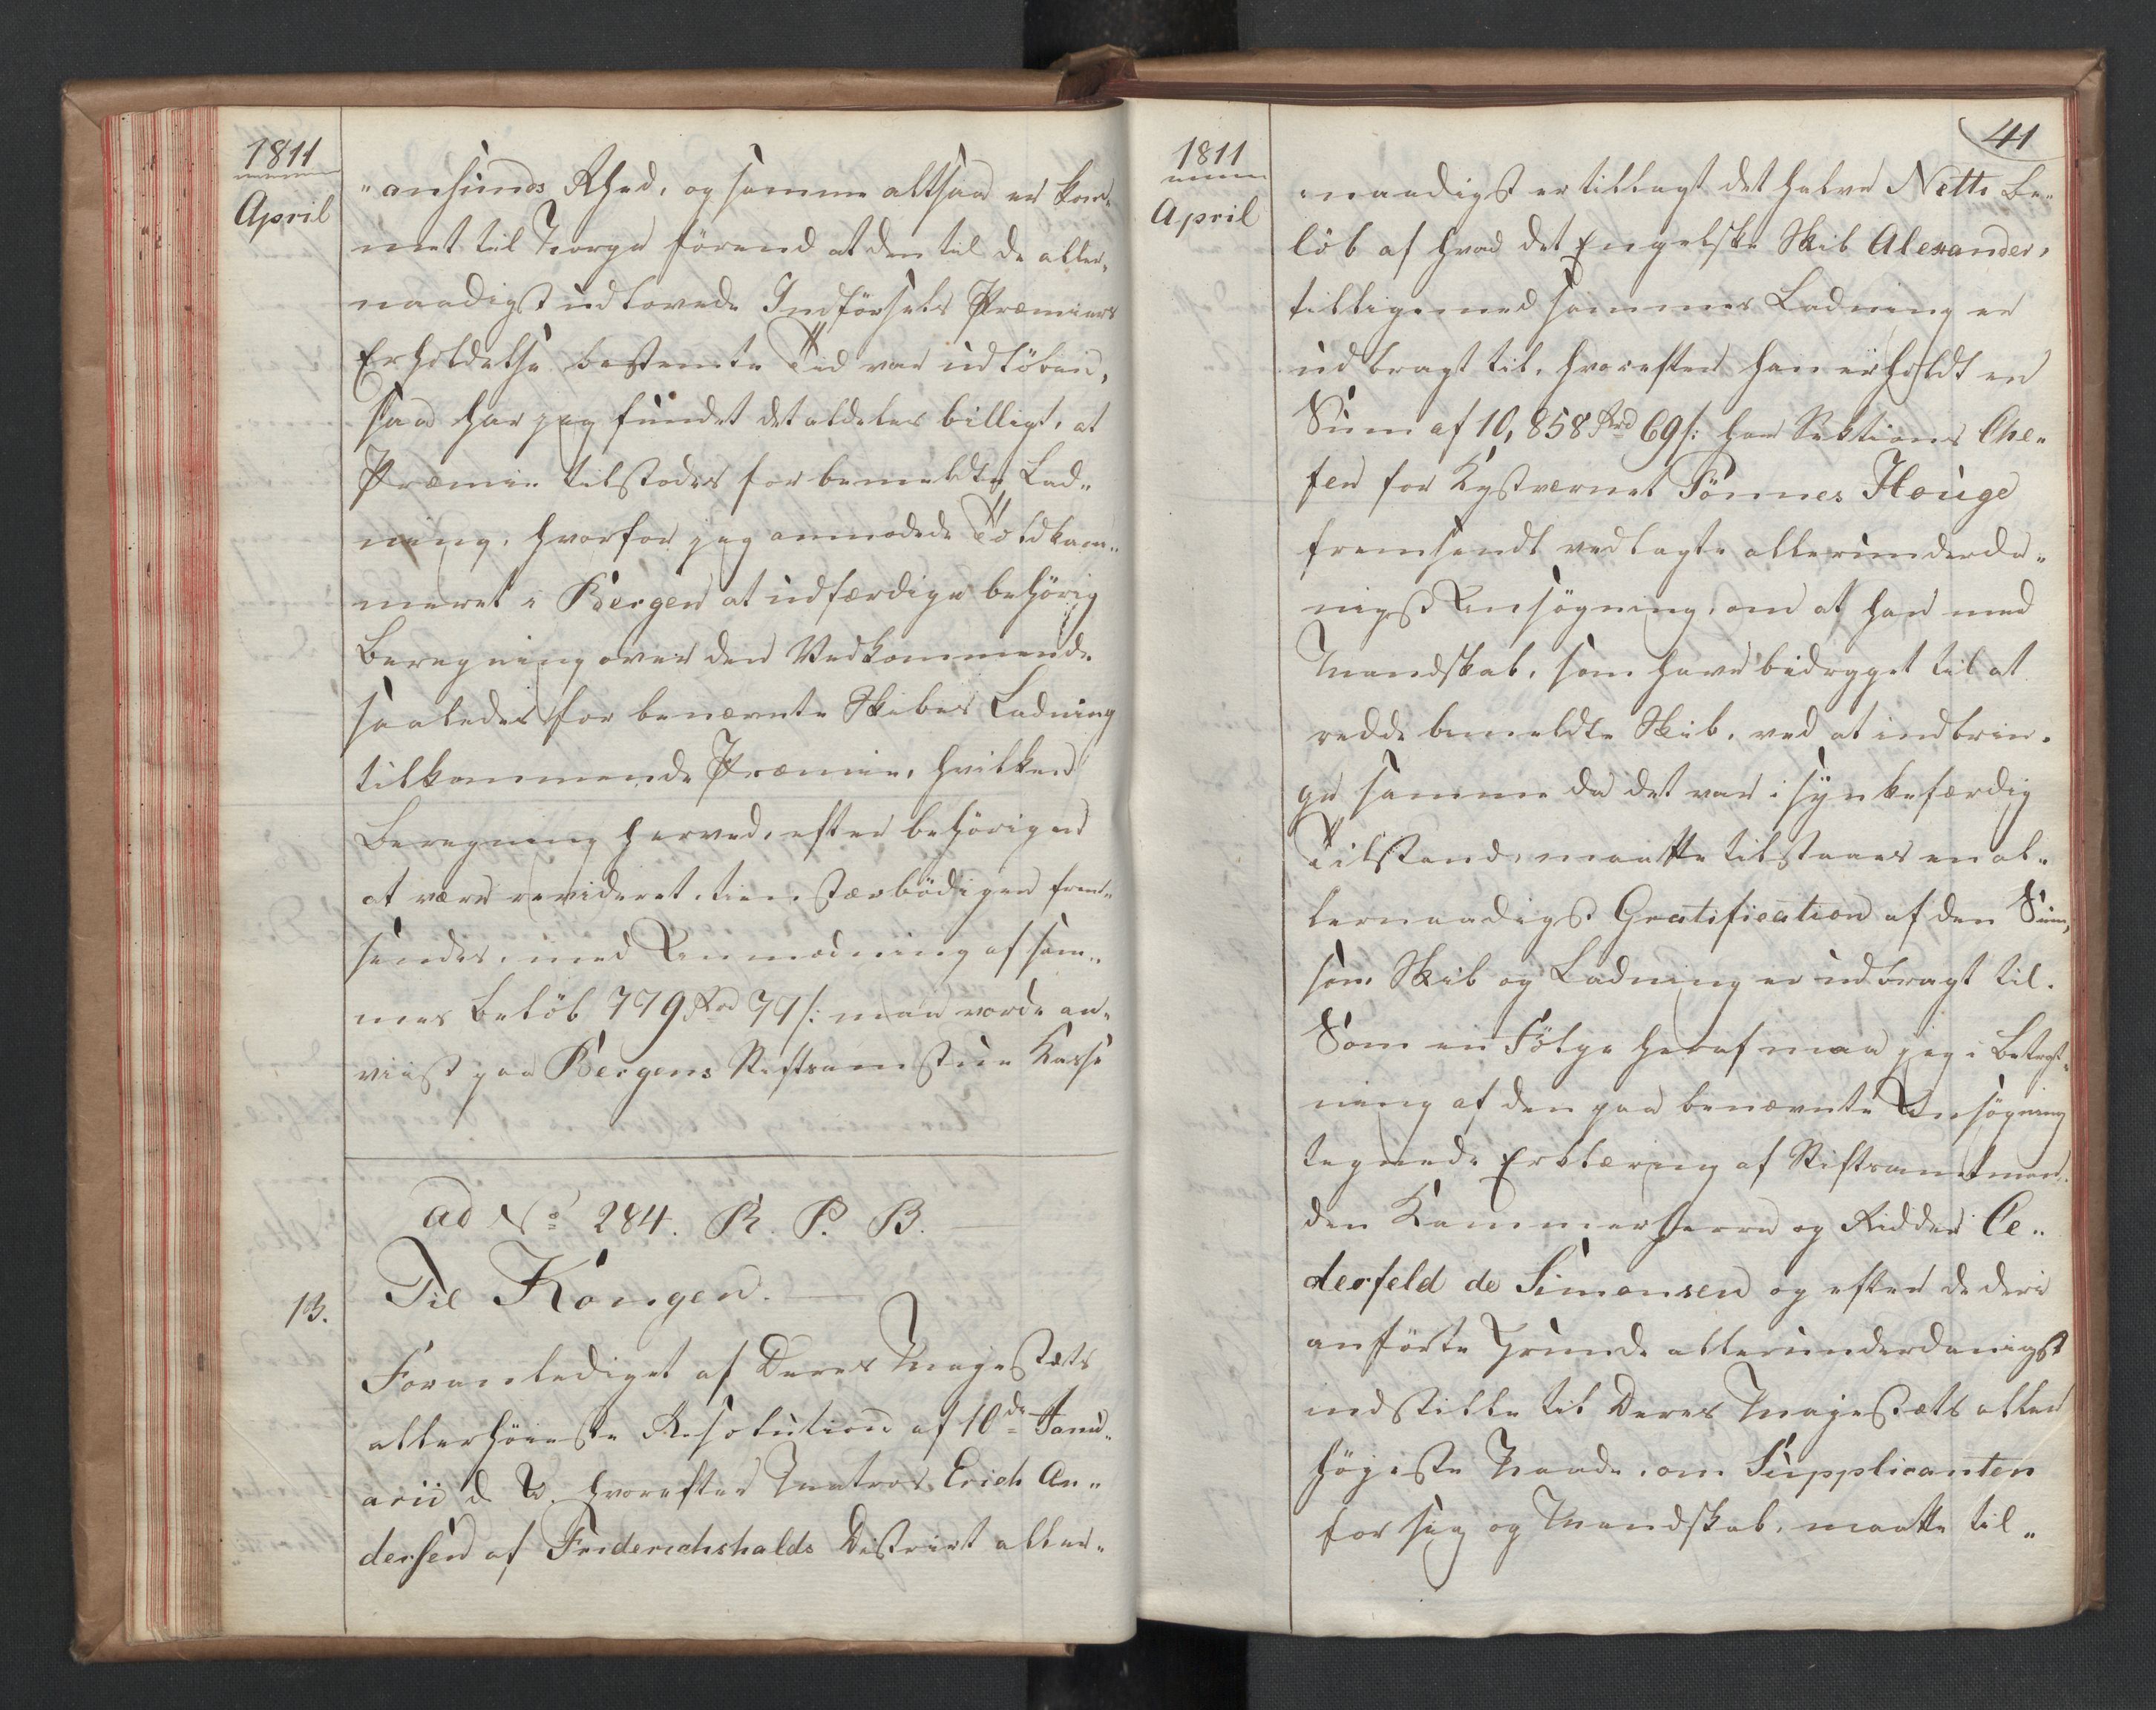 1811
April
"ansunds Rhed, og samme altsaa er kom„
met til Norge förend at den til de aller„
naadigst udlovede Indförsels Præmiers
Erholdelse bestemte Tid var udlöben,
saa har jeg fundet det aldeles billigt, at
Præmie tilstodes for bemeldte Lad„
ning, hvorfor jeg anmodede Toldkam„
meret i Bergen at udfærdige behörig
Beregning over den Vedkommende
saaledes for benævnte Skibes Ladning
tilkommende Præmie, hvilken
Beregning herved, efter behörigen
at være revideret, tienstærbödigen frem„
sendes, med Anmodning af sam„
mes Belöb 779 Rd 77 s: maa vorde an„
viist paa Bergens Stiftsamtstue Kasse
ad No 284. R. P. B.
13.
Til Kongen.
Foranlediget af Deres Majestæts
allerhöieste Resolution af 10de Janu„
arii d. A. hvorefter Matros Erich An„
dersen af Friderichshalds District aller„
41
1811
April
naadigst er tillagt det halve Netto Be„
löb af hvad det Engelske Skib Alexander,
tilligemed sammes Ladning er
udbragt til, hvorefter han erholdt en
Sum af 10,858 Rd 69 s: har Sektions Che„
fen for Kystværnet Tönnes Houge
fremsendt vedlagte allerunderda„
nigst Ansögning, om at han med
Mandskab, som have bidraget til at
redde bemeldte Skib, ved at indbrin„
ge samme da det var i synkefærdig
Tilstand, maatte tilstaaes en al„
lernaadigst Gratification af den Sum,
som Skib og Ladning er udbragt til.
Som en Fölge heraf maa jeg i Betragt„
ning af den paa benævnte Ansögning
tegnede Erklæring af Stiftsamtman„
den Kammerherre og Ridder Ce„
derfeld de Simonsen og efter de deri
anförte Grunde allerunderdanigst
indstille til Deres Majestæts aller
högeste Naade, om Supplicanten
for sig og Mandskab, maatte til„